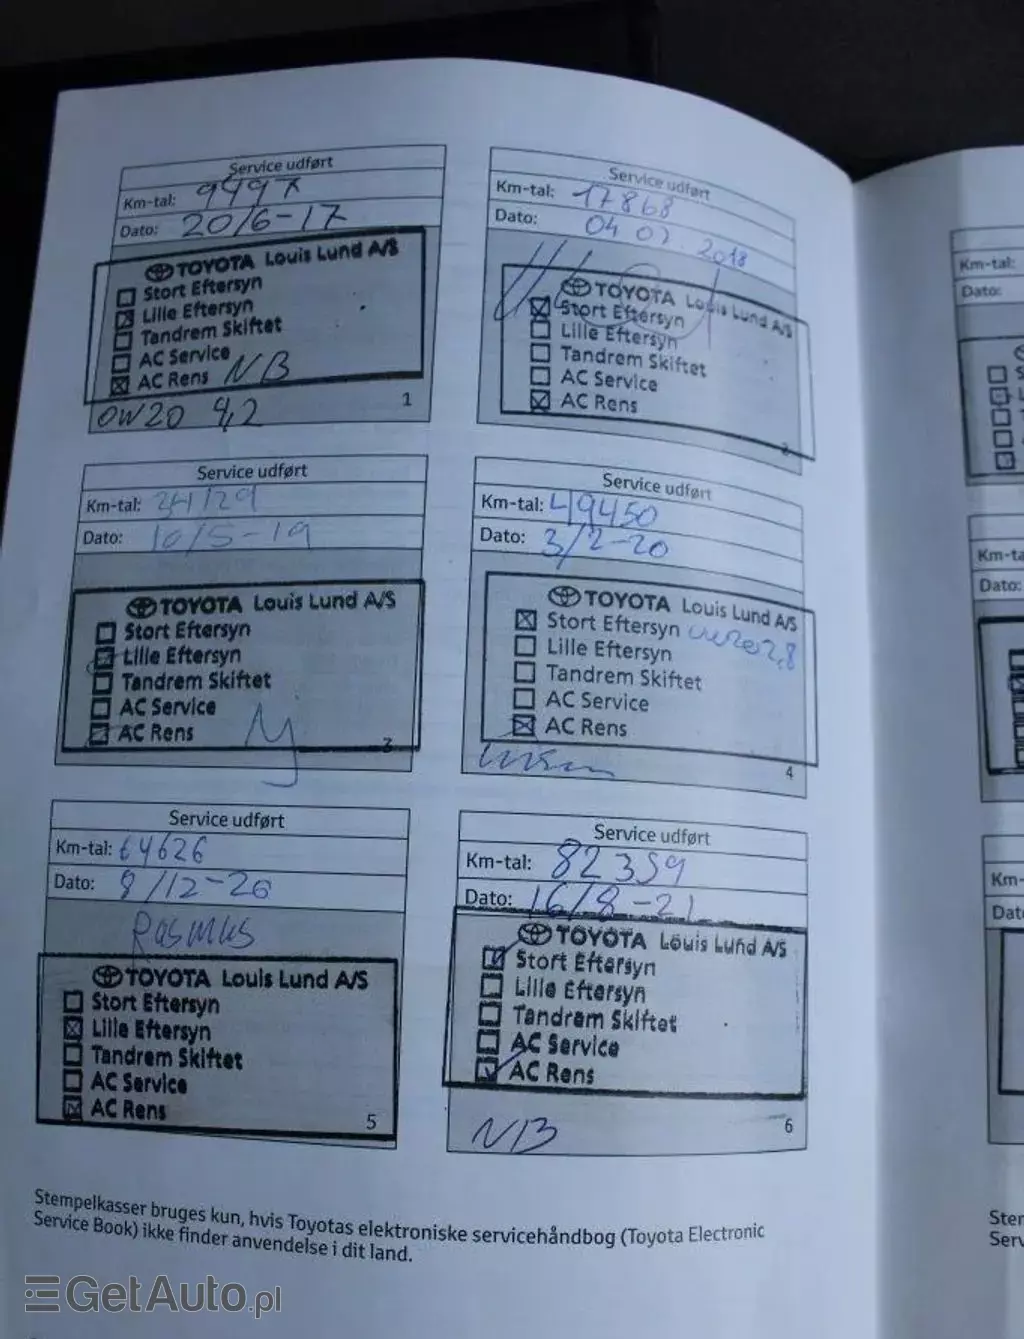 Service udført
Km-tal:
Dato: 20/6-17
TOYOTA Louis Lund A/S
Stort Eftersyn
Lille Eftersyn
Tandrem Skiftet
AC Service
AC Rens NB
OW20 4,2
1
Service udført
Km-tal: 17868
Dato: 04 07. 2018
TOYOTA Louis Lund A/S
Stort Eftersyn
Lille Eftersyn
Tandrem Skiftet
AC Service
AC Rens
2
Service udført
Km-tal:
Dato: 10/5-19
TOYOTA Louis Lund A/S
Stort Eftersyn
Lille Eftersyn
Tandrem Skiftet
AC Service
AC Rens
3
Service udført
Km-tal: 49450
Dato: 3/2-20
TOYOTA Louis Lund A/S
Stort Eftersyn
Lille Eftersyn
Tandrem Skiftet
AC Service
AC Rens
4
Service udført
Km-tal: 64626
Dato: 8/12-20
Rasmus
TOYOTA Louis Lund A/S
Stort Eftersyn
Lille Eftersyn
Tandrem Skiftet
AC Service
AC Rens
5
Service udført
Km-tal: 82359
Dato: 16/8-21
TOYOTA Louis Lund A/S
Stort Eftersyn
Lille Eftersyn
Tandrem Skiftet
AC Service
AC Rens
NB
6
Stempelkasser bruges kun, hvis Toyotas elektroniske servicehåndbog (Toyota Electronic
Service Book) ikke finder anvendelse i dit land.
Km-tal:
Dato:
Dato:
GetAuto.pl